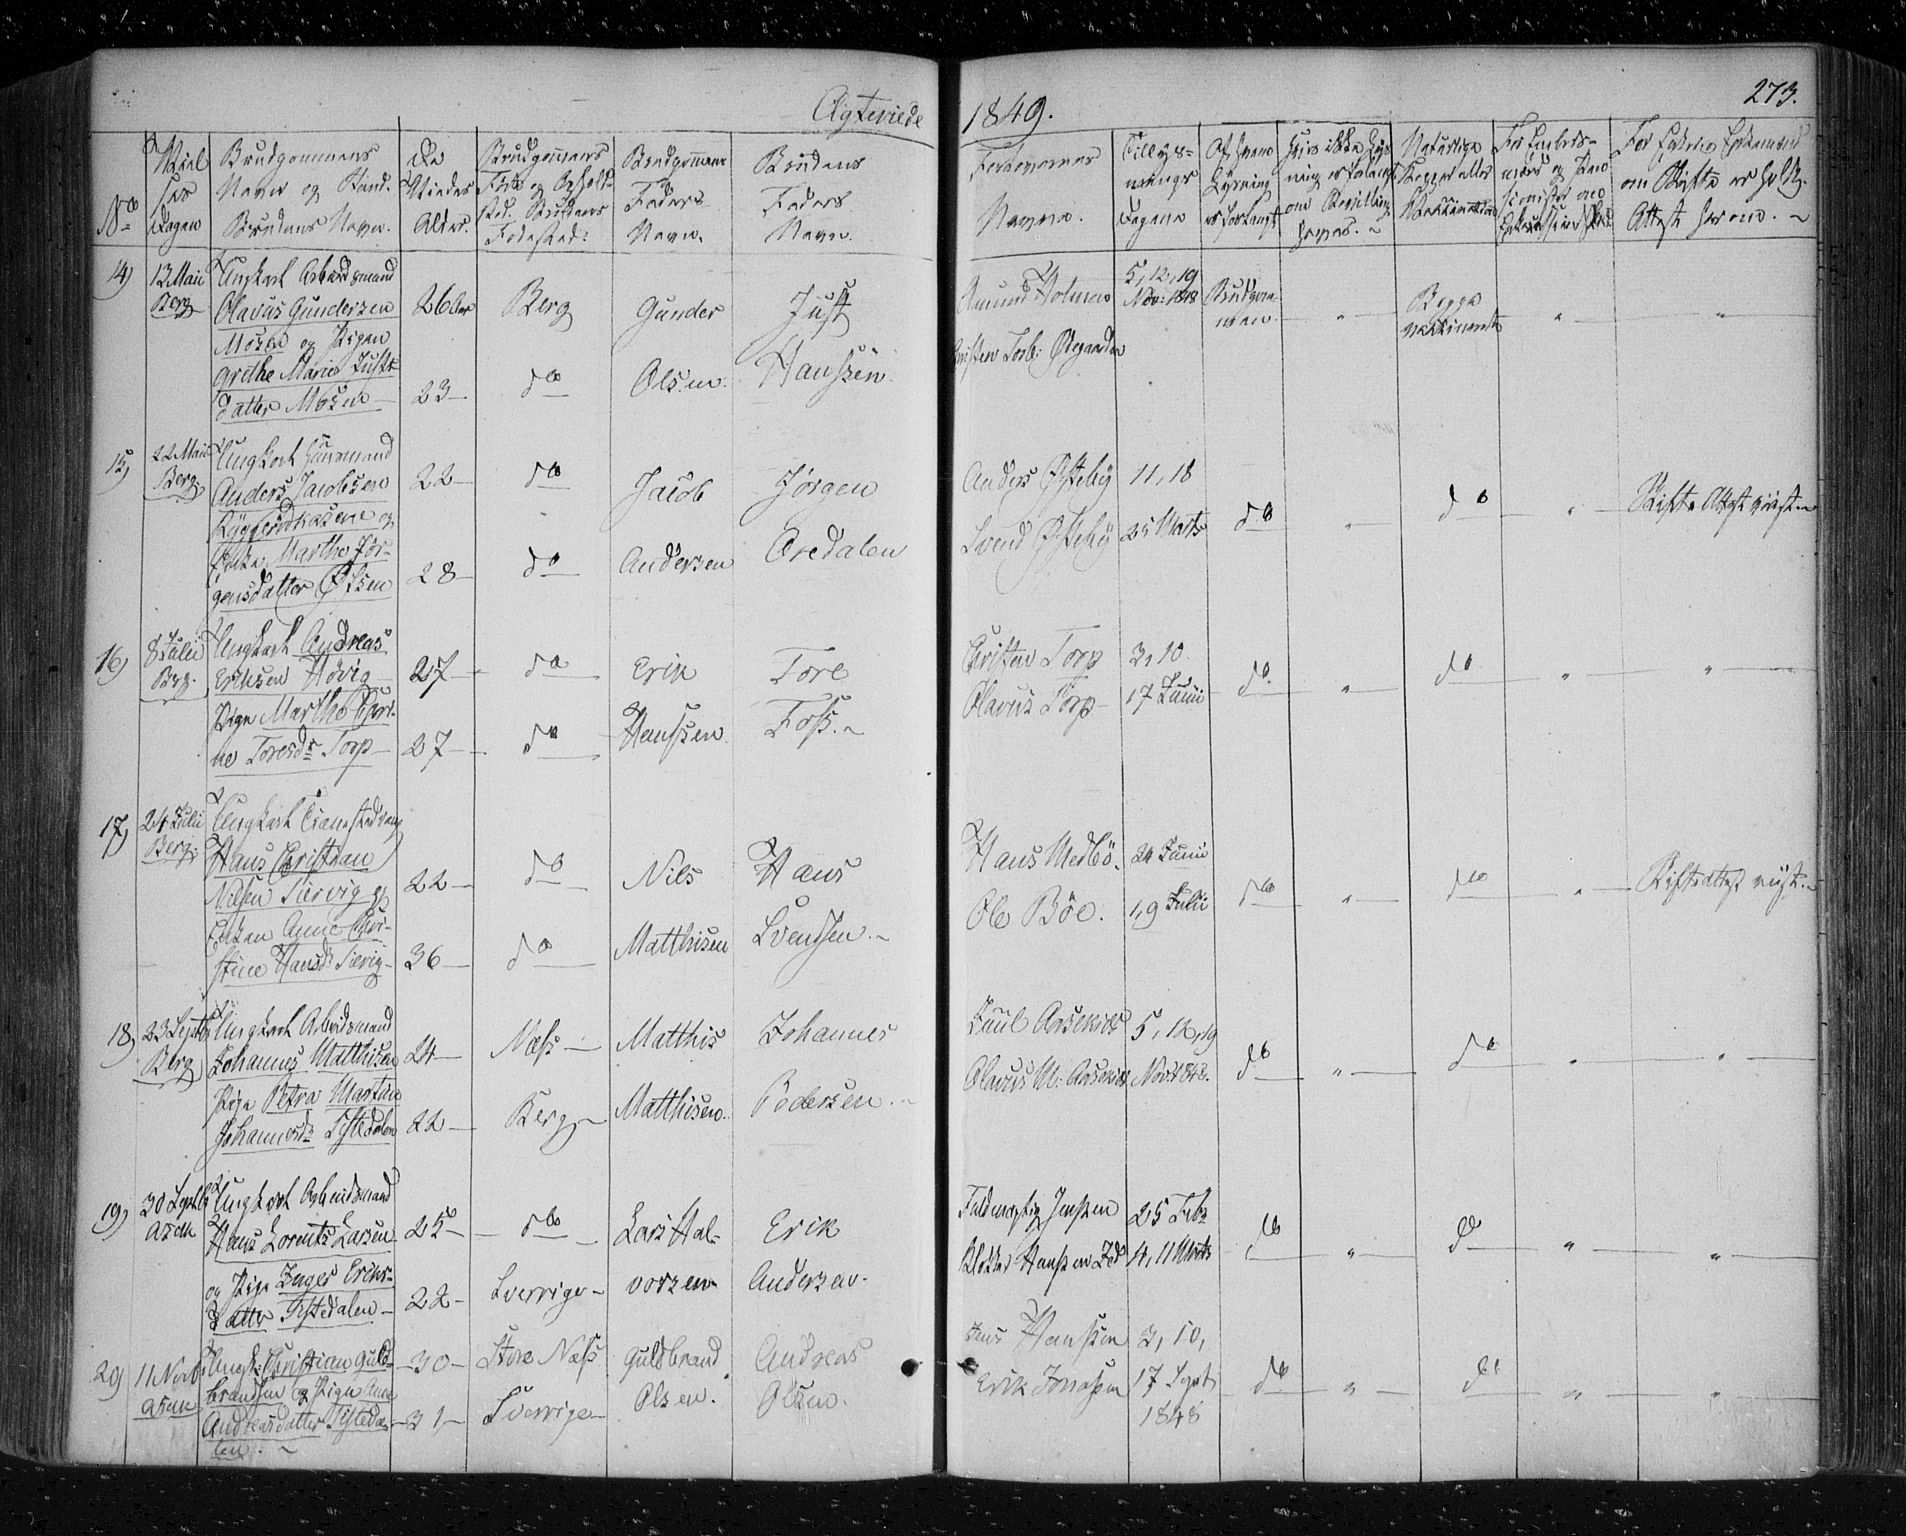 Ægteviede
1849.
273.
No
Vielses
Dagen
Brudgommens
Navn og Stand.
Brudens Navn.
De
Viedes
Alder.
Brudgommens
Føde og Opholds
sted. Brudens
Fødested.
Brudgommens
Faders
Navn.
Brudens
Faders
Navn.
Forlovernes
Navne.
Tillys-
nings
Dagene
Af hvem
Lysning
er forlangt
Naturlige
Kopper eller
Vakkination
om Skifte er holdt
Attest herom.
14)
13 Maii
Berg
Ungkarl Arbeidsmand
Olavus Gundersen
Mosen og Pigen
Grethe Marie Justs
datter Mosen
26 Aar
23
Berg
do
Gunder
Olsen.
Just
Hanssen.
Amund Holmen
5, 12, 19
Nov: 1848
Brudgom-
men.
"
Begge
vakcinerede
"
"
15)
22 Maii
Berg.
Ungkarl Huusmand
Anders Jacobsen
Enke Marthe Jør-
gensdatter
22
28
do
do
Jacob
Andersen
Jørgen
Aredalen
Anders Østeby
Svend Østeby
11, 18
25 Marts
do
"
do
"
Skifte Attest viist.
16)
8 Julii
Berg.
Ungkarl Andreas
Eriksen Høvig
Pige Marthe
ne Toresdr Torp
27
27
do
do
Erik
Hanssen
Tore
Foss.
Christen Torp
Olavus Torp
3, 10
17 Junii
do
"
do
"
"
17)
24 Julii
Berg.
Ungkarl
Hans Christian
Nilsen Siervig og
Enken Anne Chri-
stine Hansdr
22
36
do
do
Nils
Matthisen
Hans
Svendsen.
Hans Medbö.
Ole Böe.
24 Junii
1, 9 Julii
do
"
do
"
Skifteattest viist.
18)
23 Septbr
Berg
Ungkarl Arbeidsmand
Johannes Matthisen
Pige Petra Martine
Johannesdr Tistedalen
24
22
Næss
Berg
Matthis
Matthisen.
Johannes
Pedersen.
Juul
Olavus M:
5, 12, 19
Nov: 1848.
do
"
do
"
"
19)
30 Septbr
Asak
Ungkarl Arbeidsmand
Hans Lorents Larsen
og Pige Inger Eriks-
datter Tistedalen
25
22
do
Sverrige
Lars Hal-
vorsen
Erik
Andersen.
Fuldmægtig Jensen
25 Febr
4, 11 Marts
do
"
do
"
"
20)
11 Novbr
Asak
Ungk: Christian Guld-
brandsen og Pige Anne
Andreasdatter Tisteda-
len.
30
31
Store Næss
Sverrige
Guldbrand
Olsen.
Andreas
Olsen.
Hanssen
Erik
3, 10,
17 Sept
1848
do
"
do
"
"